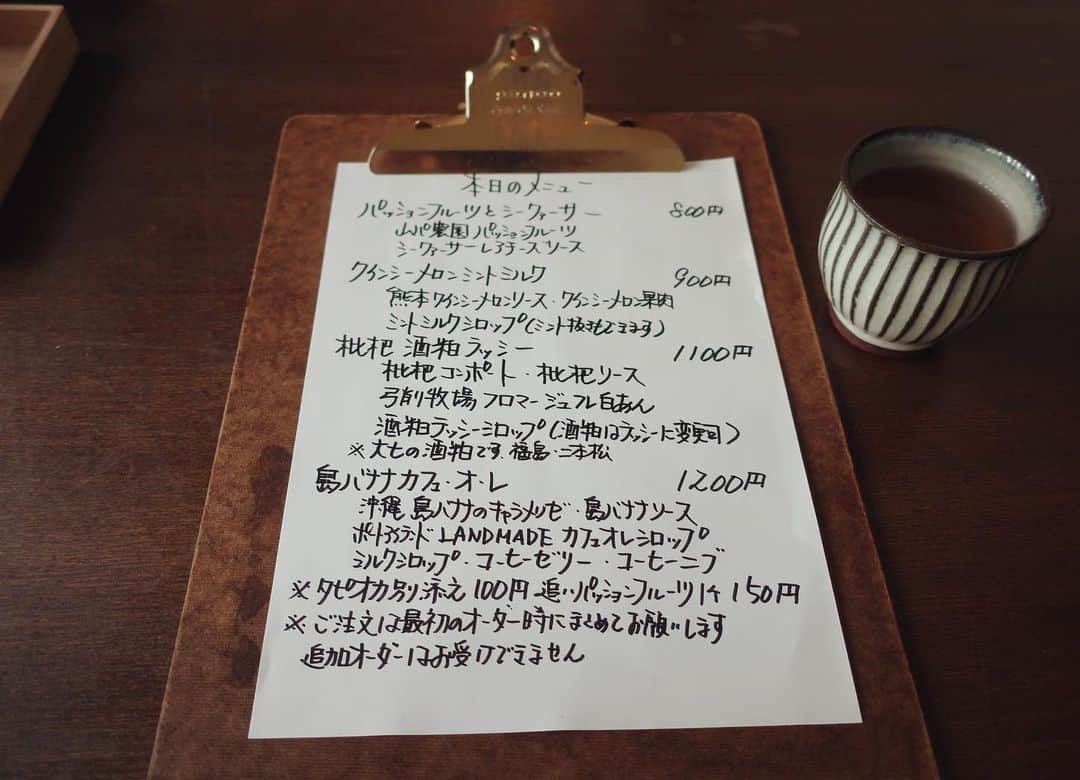 本日のメニュー
パッションフルーツとシークァーサー 800円
山パ農園 パッションフルーツ
シークァーサーレアチーズソース
クインシーメロンミントミルク 900円
熊本クインシーメロンソース・クインシーメロン果肉
ミントミルクシロップ(ミント抜きもできます)
枇杷 酒粕ラッシー 1100円
枇杷コンポート・枇杷ソース
弓削牧場フロマージュフレ白あん
酒粕ラッシーシロップ(酒粕はラッシーに変更可)
※大七の酒粕です。福島・二本松
島バナナカフェ・オ・レ 1200円
沖縄 島バナナのキャラメリゼ・島バナナソース
ポートアイランド LANDMADE カフェオレシロップ
ミルクシロップ・コーヒーゼリー・コーヒーニブ
※タピオカ別添え100円 追いパッションフルーツ1ケ150円
※ご注文は最初のオーダー時にまとめてお願いします
追加オーダーはお受けできません